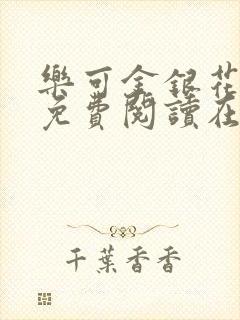 樂可金銀花
免費閱讀在
千葉香香